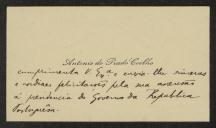 Antonio do Prado Coelho
cumprimenta V. Exª. e envia-lhe sinceras
e cordiaes felicitações pela sua ascensão
à presidencia do Governo da Republica
Portuguêsa.